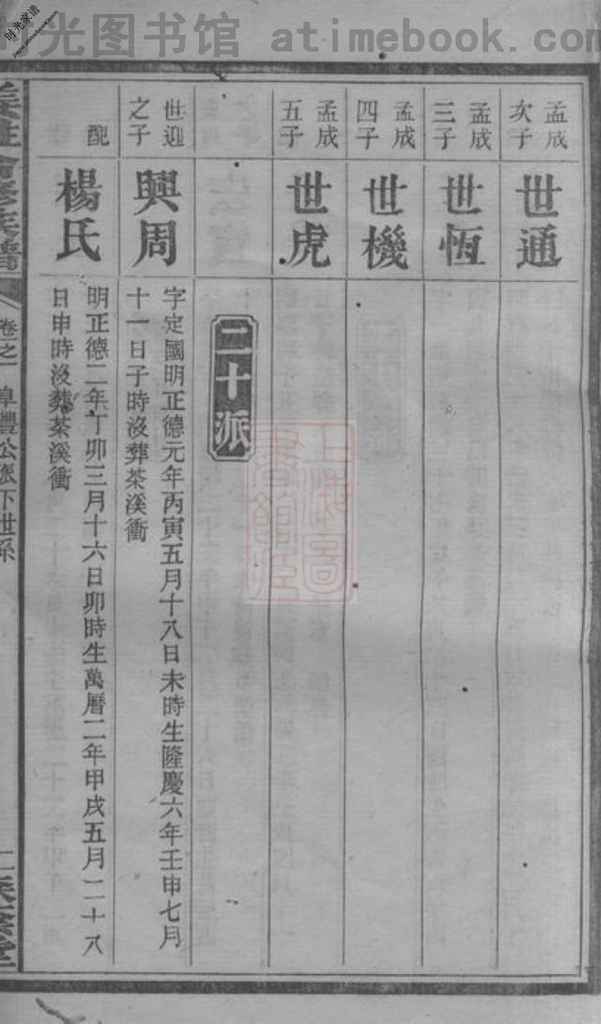 时光图书馆 atimebook.com
时光家谱
孟成次子
世通
孟成三子
世恆
孟成四子
世機
孟成五子
世虎
二十派
世迎之子
興周
字定國明正德元年丙寅五月十八日未時生隆慶六年壬申七月
十一日子時沒葬茶溪衝
配
楊氏
明正德二年丁卯三月十六日卯時生萬曆二年甲戌五月二十八
日申時沒葬茶溪衝
修族譜
卷之一
阜豐公派下世系